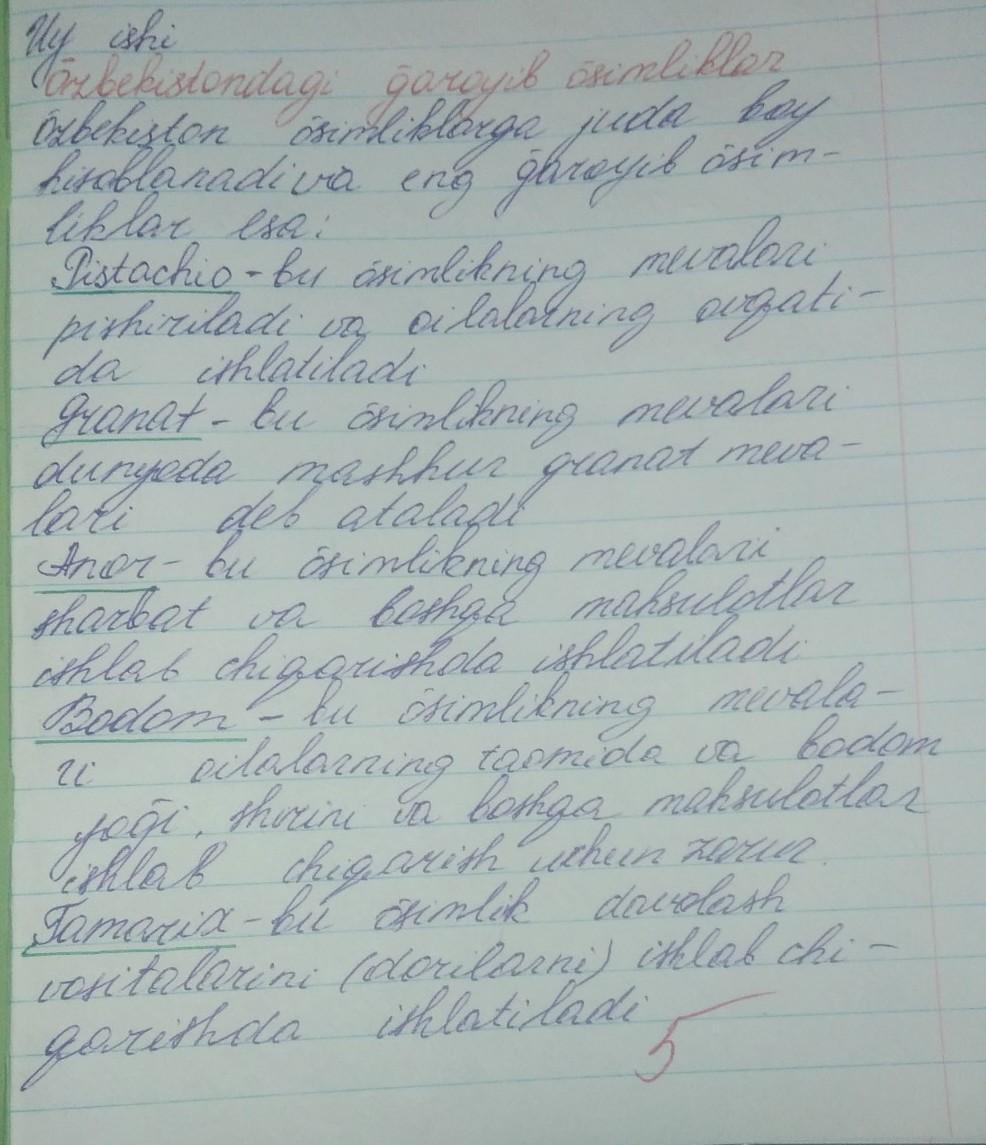 Uy ishi
Ōzbekistondagi ḡaroyib ōsimliklar
Ōzbekiston ōsimliklarga juda boy
hisoblanadi va eng ḡaroyib ōsim-
liklar esa:
Pistachio - bu ōsimlikning mevalari
pishiriladi va oilalarning ovqati-
da ishlatiladi
Granat - bu ōsimlikning mevalari
dunyoda mashhur granat meva-
lari deb ataladi
Anor - bu ōsimlikning mevalari
sharbat va boshqa mahsulotlar
ishlab chiqarishda ishlatiladi
Bodom - bu ōsimlikning mevala-
ri oilalarning taomida va bodom
yoḡi, shirini va boshqa mahsulotlar
ishlab chiqarish uchun zarur.
Tamarix - bu ōsimlik davolash
vositalarini (dorilarni) ishlab chi-
qarishda ishlatiladi
5